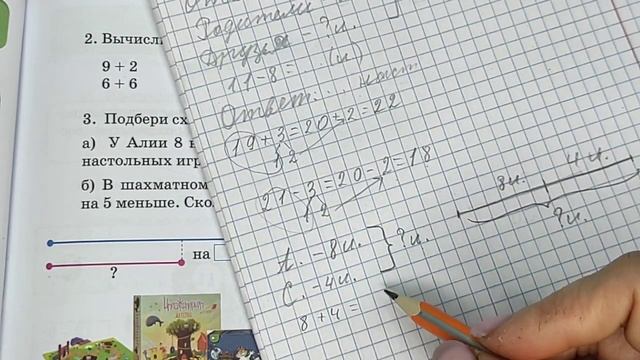 2. Вычисл
9 + 2
6 + 6
3. Подбери сх
а) У Алии 8 н
настольных игр
б) В шахматном
на 5 меньше. Ско
на
?
Родители
Друзья – ? и.
11–8=... (и)
Ответ... наст
19+3=20+2=22
1 2
21–3=20–2=18
1 2
А. – 8 и.
С. – 4 и.
? и.
8+4=
8 и. 4 и.
? и.